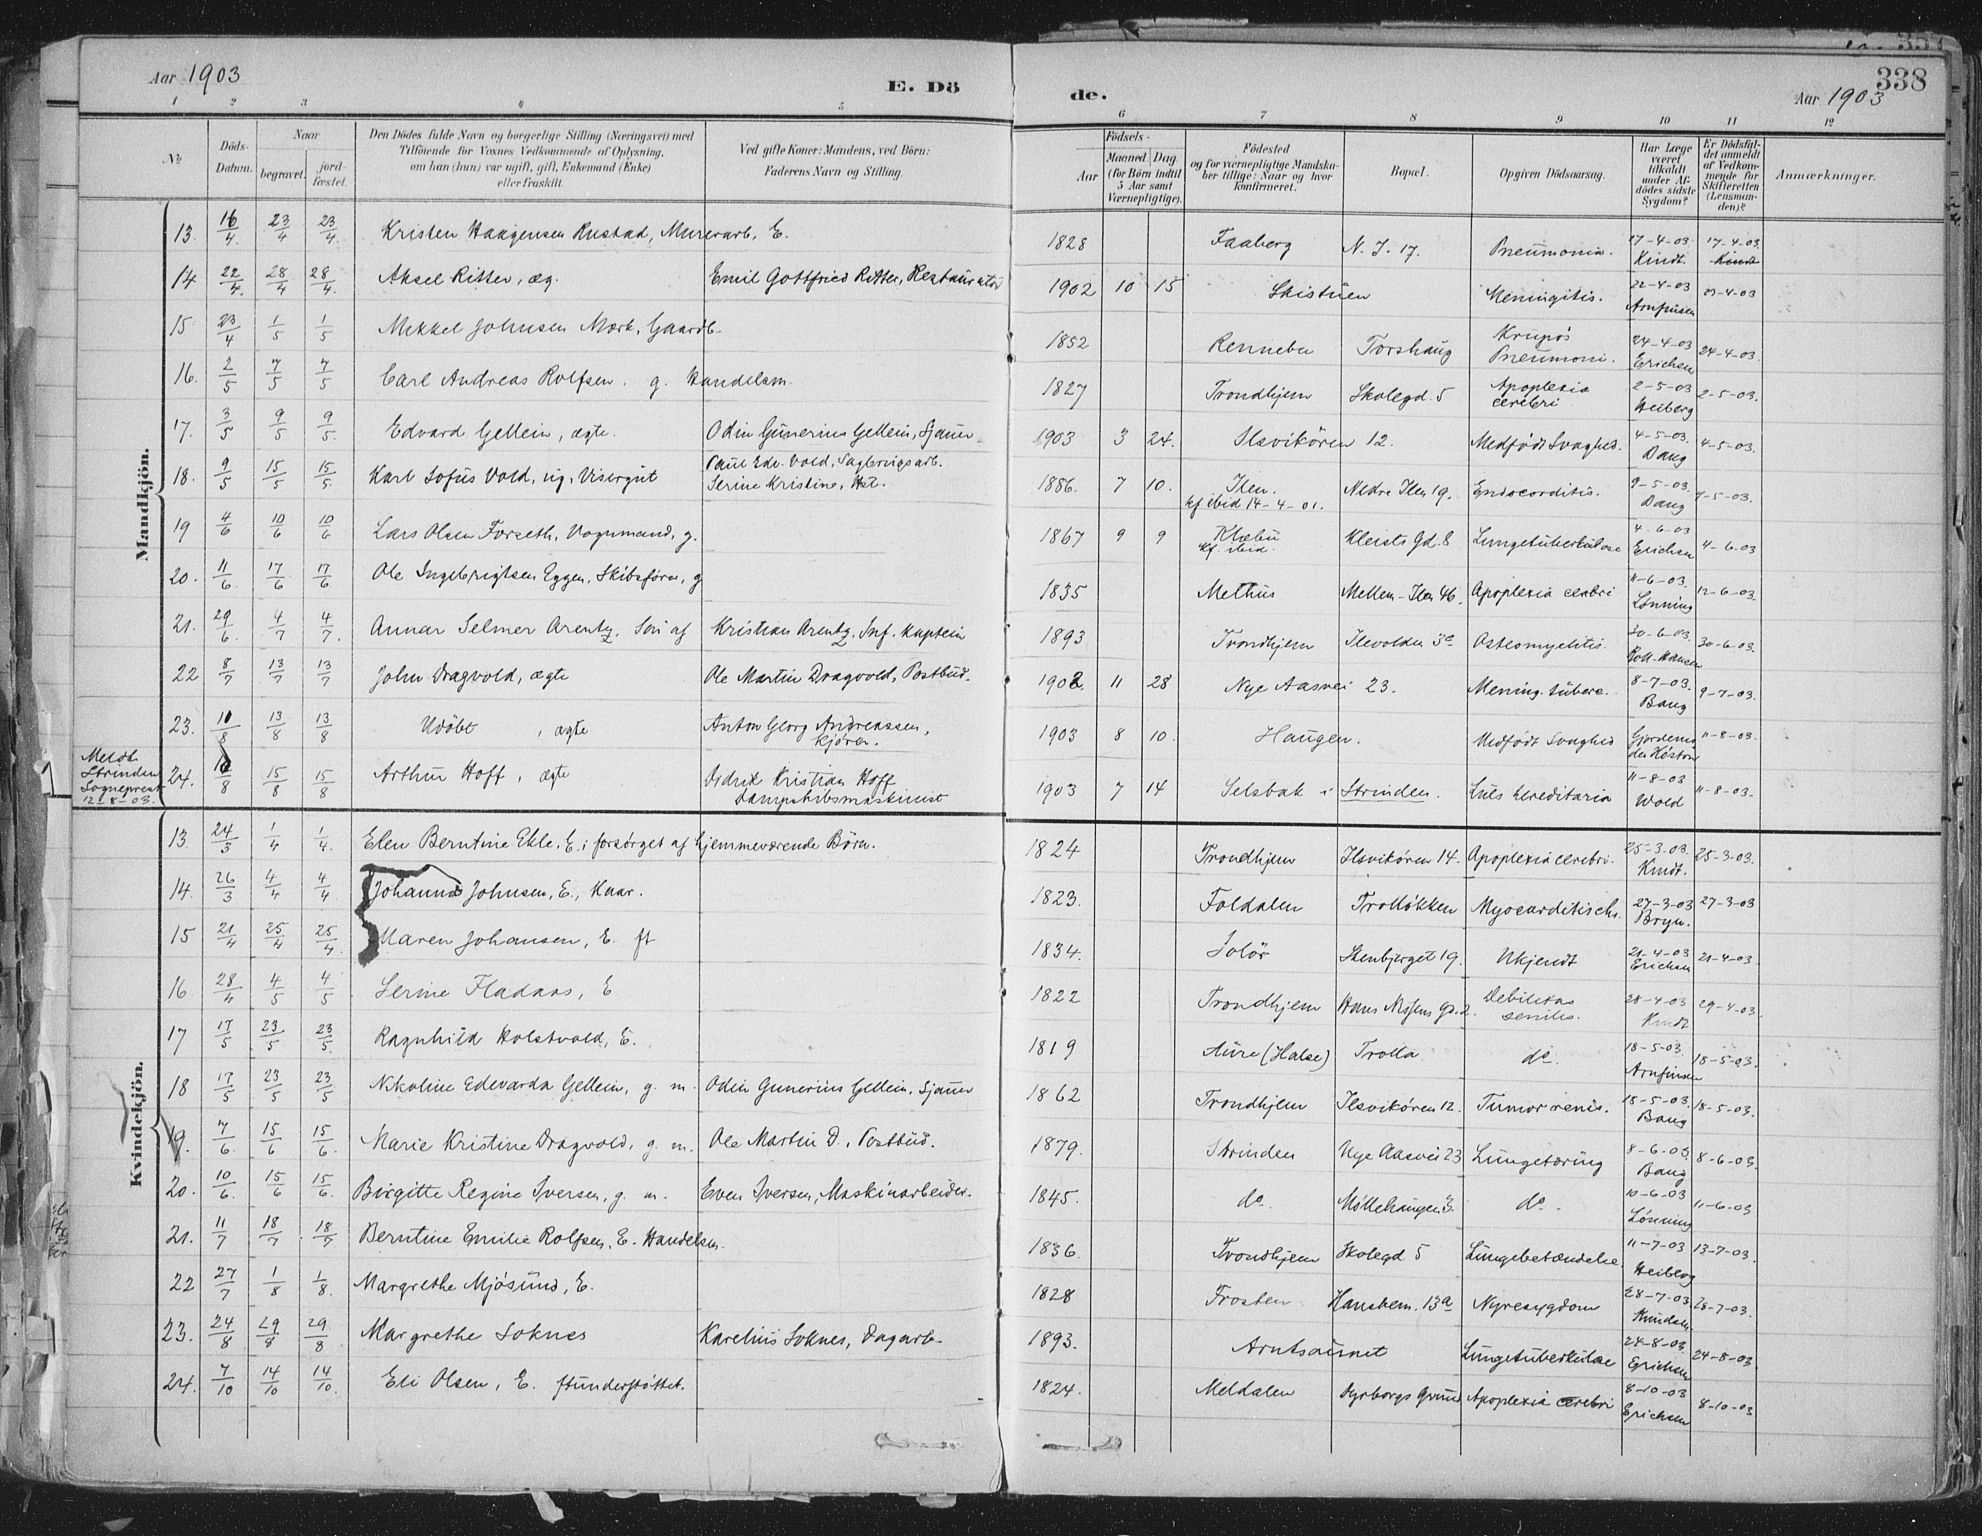 Aar 1903
E. Dö
de.
338
Aar 1903
1 2 3 4 5 6 7 8 9 10 11 12
No
Döds-Datum.
Naar
begravet.
jord-fæstet.
Den Dödes fulde Navn og borgerlige Stilling (Næringsvei) med
Tilföiende for Voxnes Vedkommende af Oplysning,
om han (hun) var ugift, gift, Enkemand (Enke)
eller fraskilt.
Ved gifte Koner: Mandens, ved Börn:
Faderens Navn og Stilling.
Födsels-
Aar
Maaned. Dag.
(for Börn indtil
5 Aar samt
Værnepligtige).
Födested
og for værnepligtige Mandska-
ber tillige: Naar og hvor
konfirmeret.
Bopæl.
Opgiven Dödsaarsag.
Har Læge
været
tilkaldt
under Af-
dödes sidste
Sygdom?
Er Dödsfal-
det anmeldt
af Vedkom-
mende for
Skifteretten
(Lensman-
den)?
Anmærkninger.
Mandkjön.
13. 16/4 23/4 23/4 Kristen Haagensen Rustad, Murerarb, E. 1828 Faaberg N. I. 17. Pneumonia. 17-4-03. Kindt. 17-4-03. Kindt
14 22/4 28/4 28/4 Aksel Ritter, æg. Emil Gottfried Ritter, Restauratör 1902 10 15 Skistuen Meningitis. 22-4-03 Arnfinsen 23-4-03
15 23/4 1/5 1/5 Mekkel Johnsen Mærk, Gaardb. 1852 Rennebu Torshaug Krupös Pneumoni. 24-4-03 Erichsen 24-4-03
16. 2/5 7/5 7/5 Carl Andreas Rolfsen. g. Handelsm. 1827 Trondhjem Skolegd. 5 Apoplexia cerebri 2-5-03 Heiberg 2-5-03.
17. 3/5 9/5 9/5. Edvard Gellein, ægte. Odin Gunerius Gellein, Sjauer 1903 3 24. Ilsvikören 12. Medfödt Svaghed. 4-5-03. Bang 4-5-03.
18. 9/5 15/5 15/5. Karl Sofus Vold, ug, Visergut Paul Edv. Vold, Sagbrugsarb. Serine Kristine, Hst. 1886. 7 10. Ilen. kf ibid 14-4-01. Nedre Ilen 19. Endocorditis. 9-5-03. Bang 9-5-03.
19 4/6 10/6 10/6 Lars Olsen Forseth, Vognmand, g. 1867 9 9 Klæbu kf. ibid. Kleists Gd. 8 Lungetuberkulose 4-6-03 Erichsen 4-6-03
20. 11/6. 17/6 17/6 Ole Ingebrigtsen Eggen, Skibsförer, g 1835 Melhus Mellem-Ilen 46. Apoplexia cerebri 11-6-03. Lönning 12-6-03
21. 29/6. 4/7 4/7. Annar Selmer Arentz, Sön af Kristian Arentz, Inf. kaptein 1893 Trondhjem Ilevolden 3c Osteomyelitis. 30-6-03. Roll-Hansen 30-6-03.
22 8/7 13/7 13/7 John Dragvold, ægte Ole Martin Dragvold, Postbud. 1902. 11 28 Nye Aasvei 23. Mening. tuberc. 8-7-03. Bang 9-7-03.
23. 10/8 13/8 13/8 Udöbt, ægte Anton Georg Andreassen, kjörer. 1903 8 10. Haugen. Medfödt Svaghed Gjordemoder 11-8-03.
Meldt Strinden Sognepræst 12-8-03.
24. 10/8 15/8 15/8 Arthur Hoff, ægte Didrik Kristian Hoff Dampskibsmaskinist 1903 7 14 Selsbak i Strinden. Lues hereditaria 11-8-03 Wold 11-8-03.
Kvindekjön.
13. 24/3 1/4 1/4. Elen Berntine Ekle, E. i forsörget af hjemmeværende Börn. 1824 Trondhjem Ilsvikören 14. Apoplexia cerebri. 25-3-03. Kindt. 25-3-03.
14. 26/3 4/4 4/4 Johanna Johnsen, E., Haar. 1823. Foldalen Trolløkken Myocarditis chr. 27-3-03 Bryn. 27-3-03
15 21/4 25/4 25/4. Maren Johansen, E. ft 1834. Solör Stenbjerget 19. Ukjendt 21-4-03 Erichsen 21-4-03
16 28/4 4/5 4/5 Serine Fladaas, E 1822 Trondhjem Hans Nissens Gd. 2. Debilitas senilis. 28-4-03 Kindt 29-4-03.
17 17/5 23/5 23/5. Ragnhild Holstvold, E. 1819 Aure (Halse) Trolla do. 18-5-03. Arnfinsen 18-5-03.
18 17/5 23/5 23/5 Nikoline Edevarda Gellein, g. m. Odin Gunerius Gellein, Sjauer 1862 Trondhjem Ilsvikören 12. Tumor renis. 18-5-03. Bang 18-5-03.
19. 7/6. 15/6 15/6. Marie Kristine Dragvold, g. m. Ole Martin D., Postbud. 1879. Strinden Nye Aasvei 23 Lungetæring 8-6-03 Bang 8-6-03.
20. 10/6. 15/6 15/6 Birgitte Regine Iversen, g. m. Even Iversen, Maskinarbeider. 1845. do. Möllehaugen 3. do. 10-6-03 Lönning 11-6-03
21. 11/7 18/7 18/7 Berntine Emilie Rolfsen, E. Handelsm. 1836. Trondhjem Skolegd. 5 Lungebetændelse 11-7-03 Heiberg 13-7-03.
22 27/7 1/8 1/8. Margrethe Mjösund, E. 1828 Frosten Hanshem. 13a Nyresygdom 28-7-03. 28-7-03.
23. 24/8 29/8 29/8 Margrethe Soknes Karelius Soknes, Dagarb. 1893. Arntsaunet Lungetuberkulose 24-8-03. Erichsen 24-8-03.
24. 7/10 14/10 14/10. Eli Olsen, E. ftunderstöttet. 1824. Meldalen Dyrborgs Grund Apoplexia cerebri 8-10-03 Erichsen 8-10-03